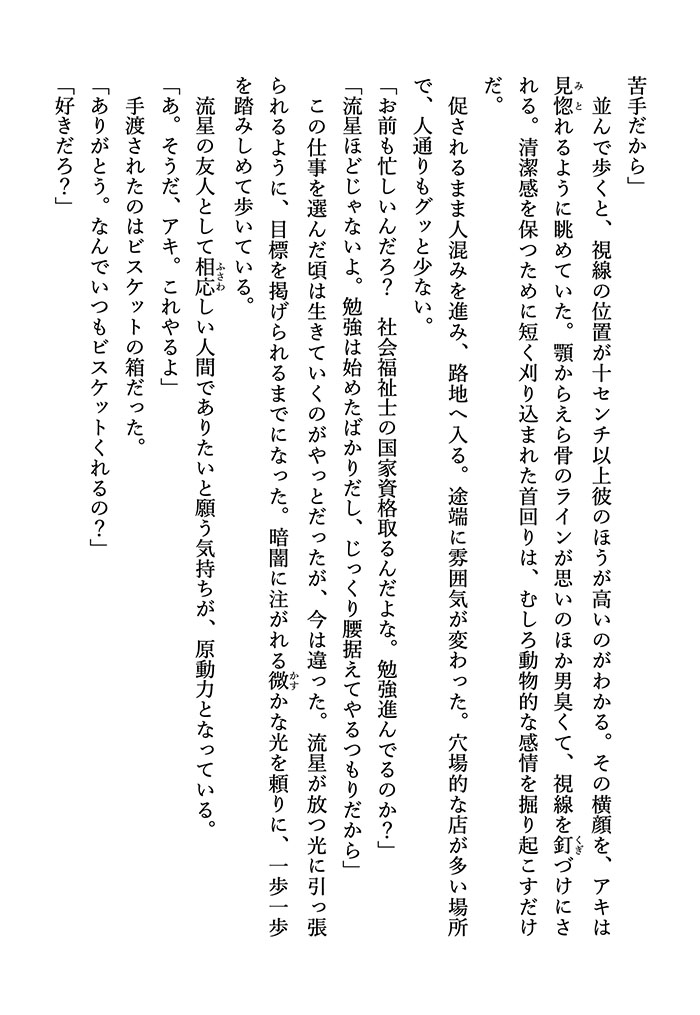 苦手だから」
　並んで歩くと、視線の位置が十センチ以上彼のほうが高いのがわかる。その横顔を、アキは
見惚れるように眺めていた。顎からえら骨のラインが思いのほか男臭くて、視線を釘づけにさ
れる。清潔感を保つために短く刈り込まれた首回りは、むしろ動物的な感情を掘り起こすだけ
だ。
　促されるまま人混みを進み、路地へ入る。途端に雰囲気が変わった。穴場的な店が多い場所
で、人通りもグッと少ない。
「お前も忙しいんだろ？　社会福祉士の国家資格取るんだよな。勉強進んでるのか？」
「流星ほどじゃないよ。勉強は始めたばかりだし、じっくり腰据えてやるつもりだから」
　この仕事を選んだ頃は生きていくのがやっとだったが、今は違った。流星が放つ光に引っ張
られるように、目標を掲げられるまでになった。暗闇に注がれる微かな光を頼りに、一歩一歩
を踏みしめて歩いている。
　流星の友人として相応しい人間でありたいと願う気持ちが、原動力となっている。
「あ。そうだ、アキ。これやるよ」
　手渡されたのはビスケットの箱だった。
「ありがとう。なんでいつもビスケットくれるの？」
「好きだろ？」